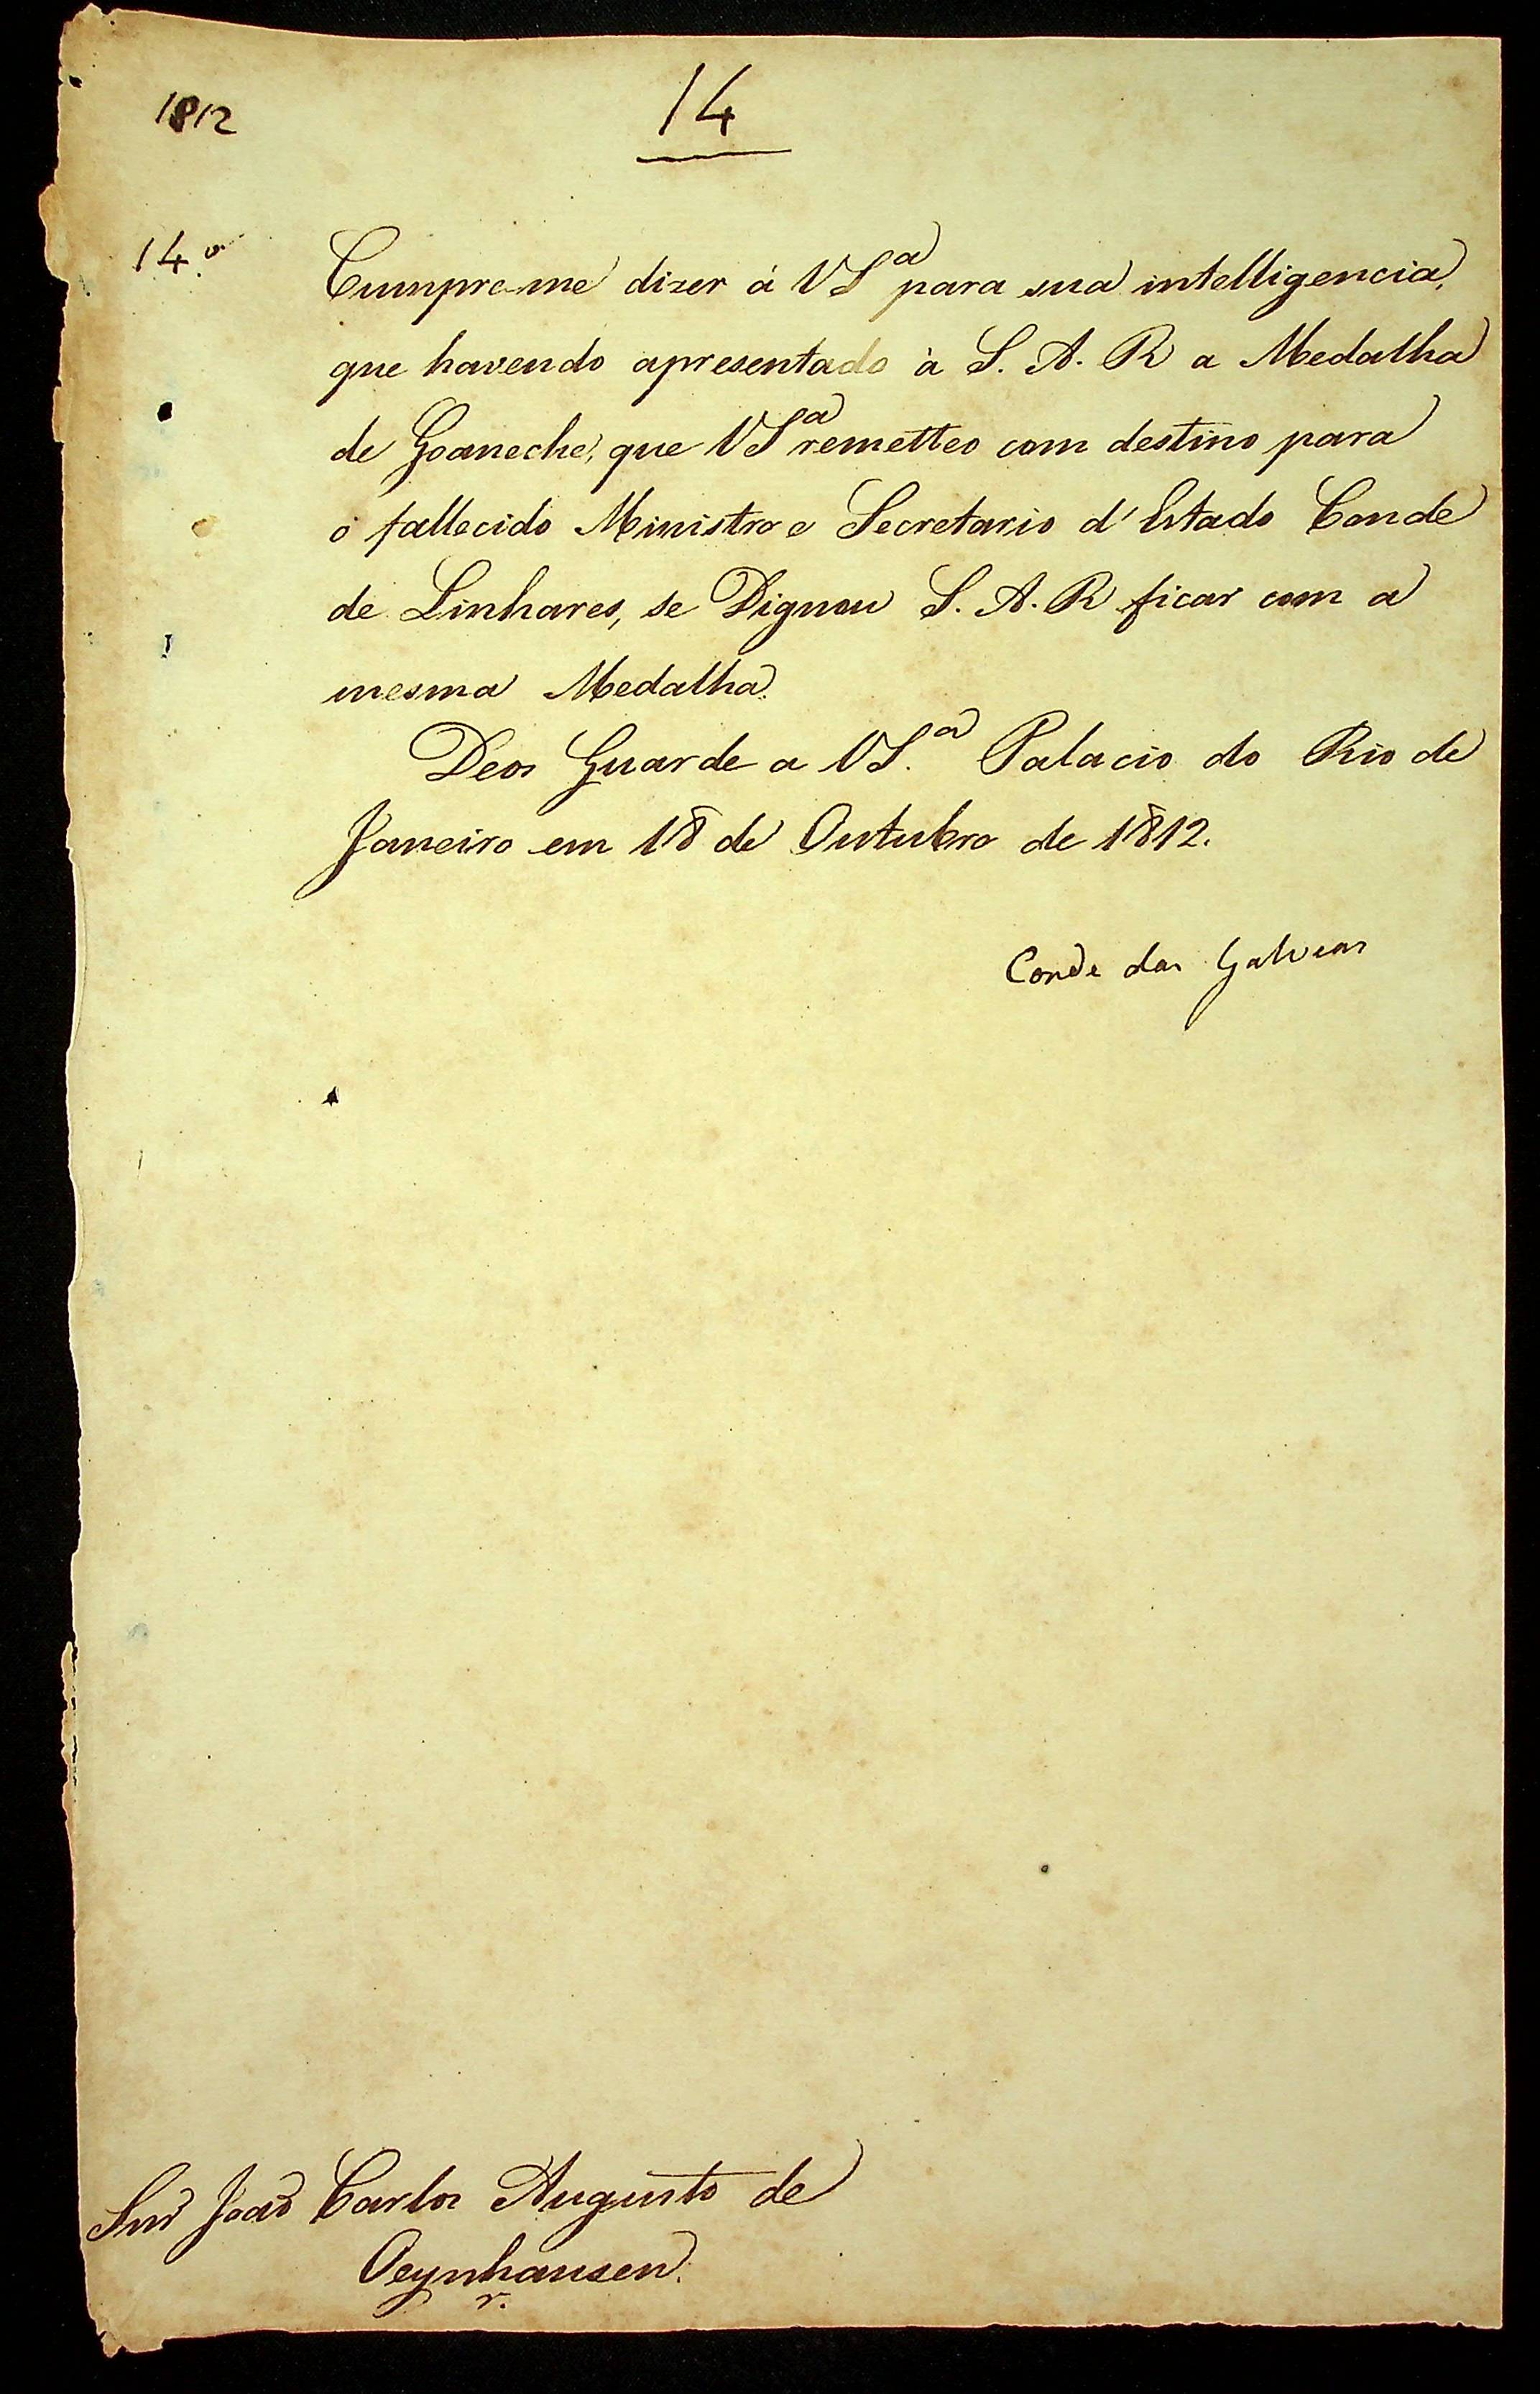 1812
14
14.º
Cumpre-me dizer á VSª para sua intelligencia,
que havendo apresentado à S. A. R a Medalha
de Goaneche, que VSª remetteo com destino para
o fallecido Ministro e Secretario d'Estado Conde
de Linhares, se Dignou S. A. R ficar com a
mesma Medalha.
Deos Guarde a VS.ª Palacio do Rio de
Janeiro em 18 de Outubro de 1812.
Conde das Galveas
Snr João Carlos Augusto de
Oeynhausen.